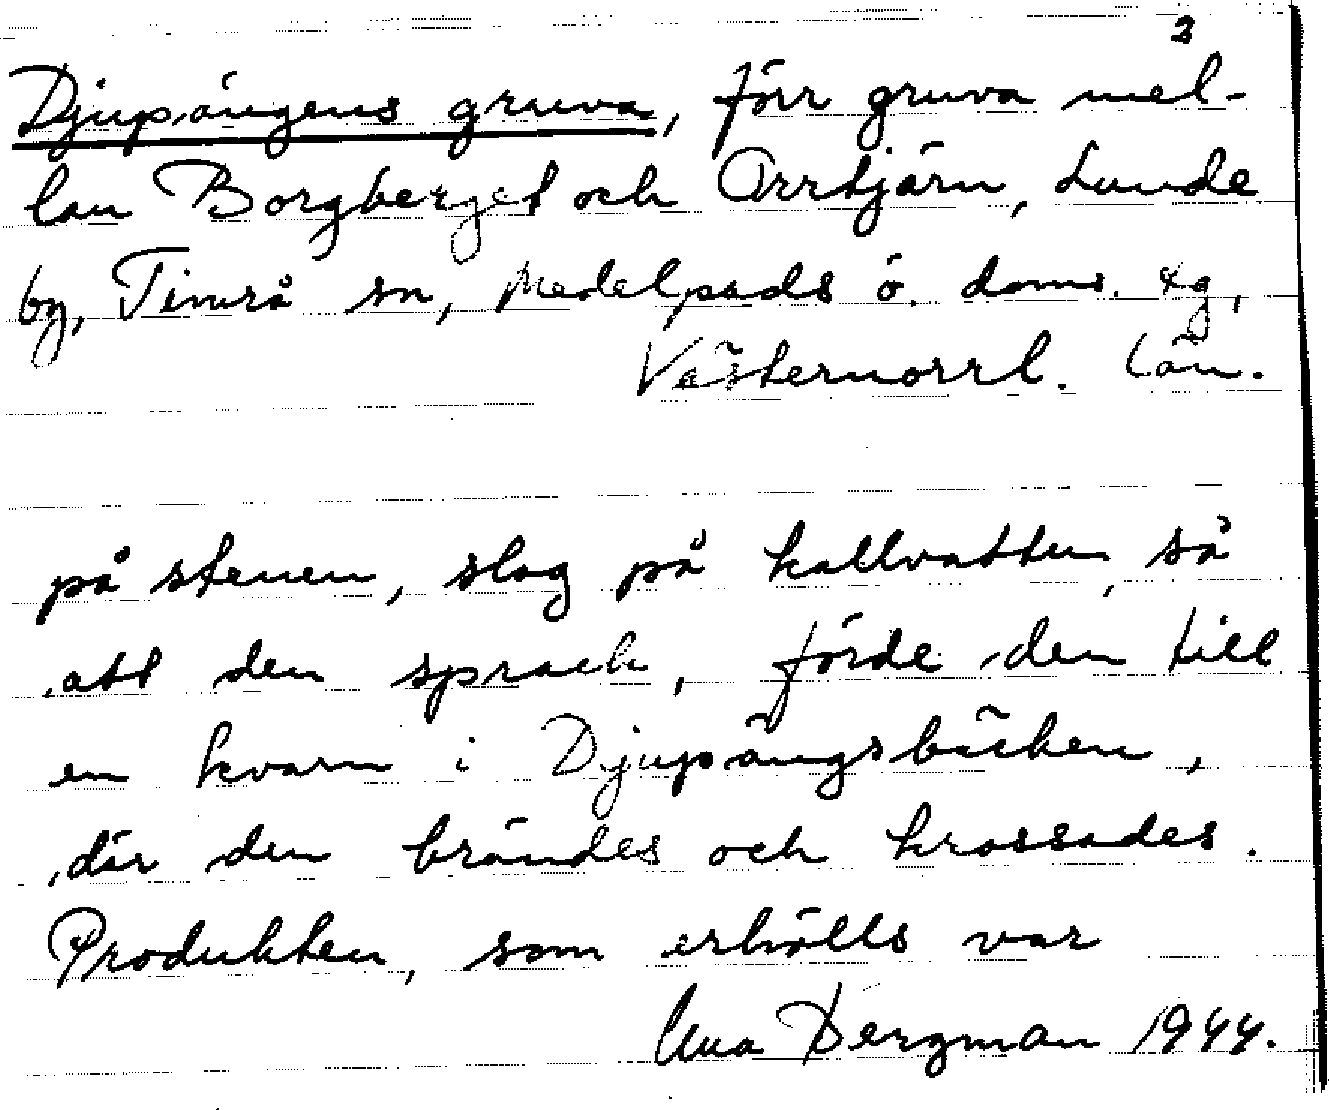 3
Djupängens gruva, förr gruva mel-
lan Borgberget och Orrtjärn, Lunde
by, Timrå sn, Medelpads ö. doms. tg,
Västernorrl. län.
på stenen, slog på kallvatten, så
att den sprack, förde den till
en kvarn i Djupängsbäcken,
där den brändes och krossades.
Produkten, som erhölls var
Ana Bergman 1944.